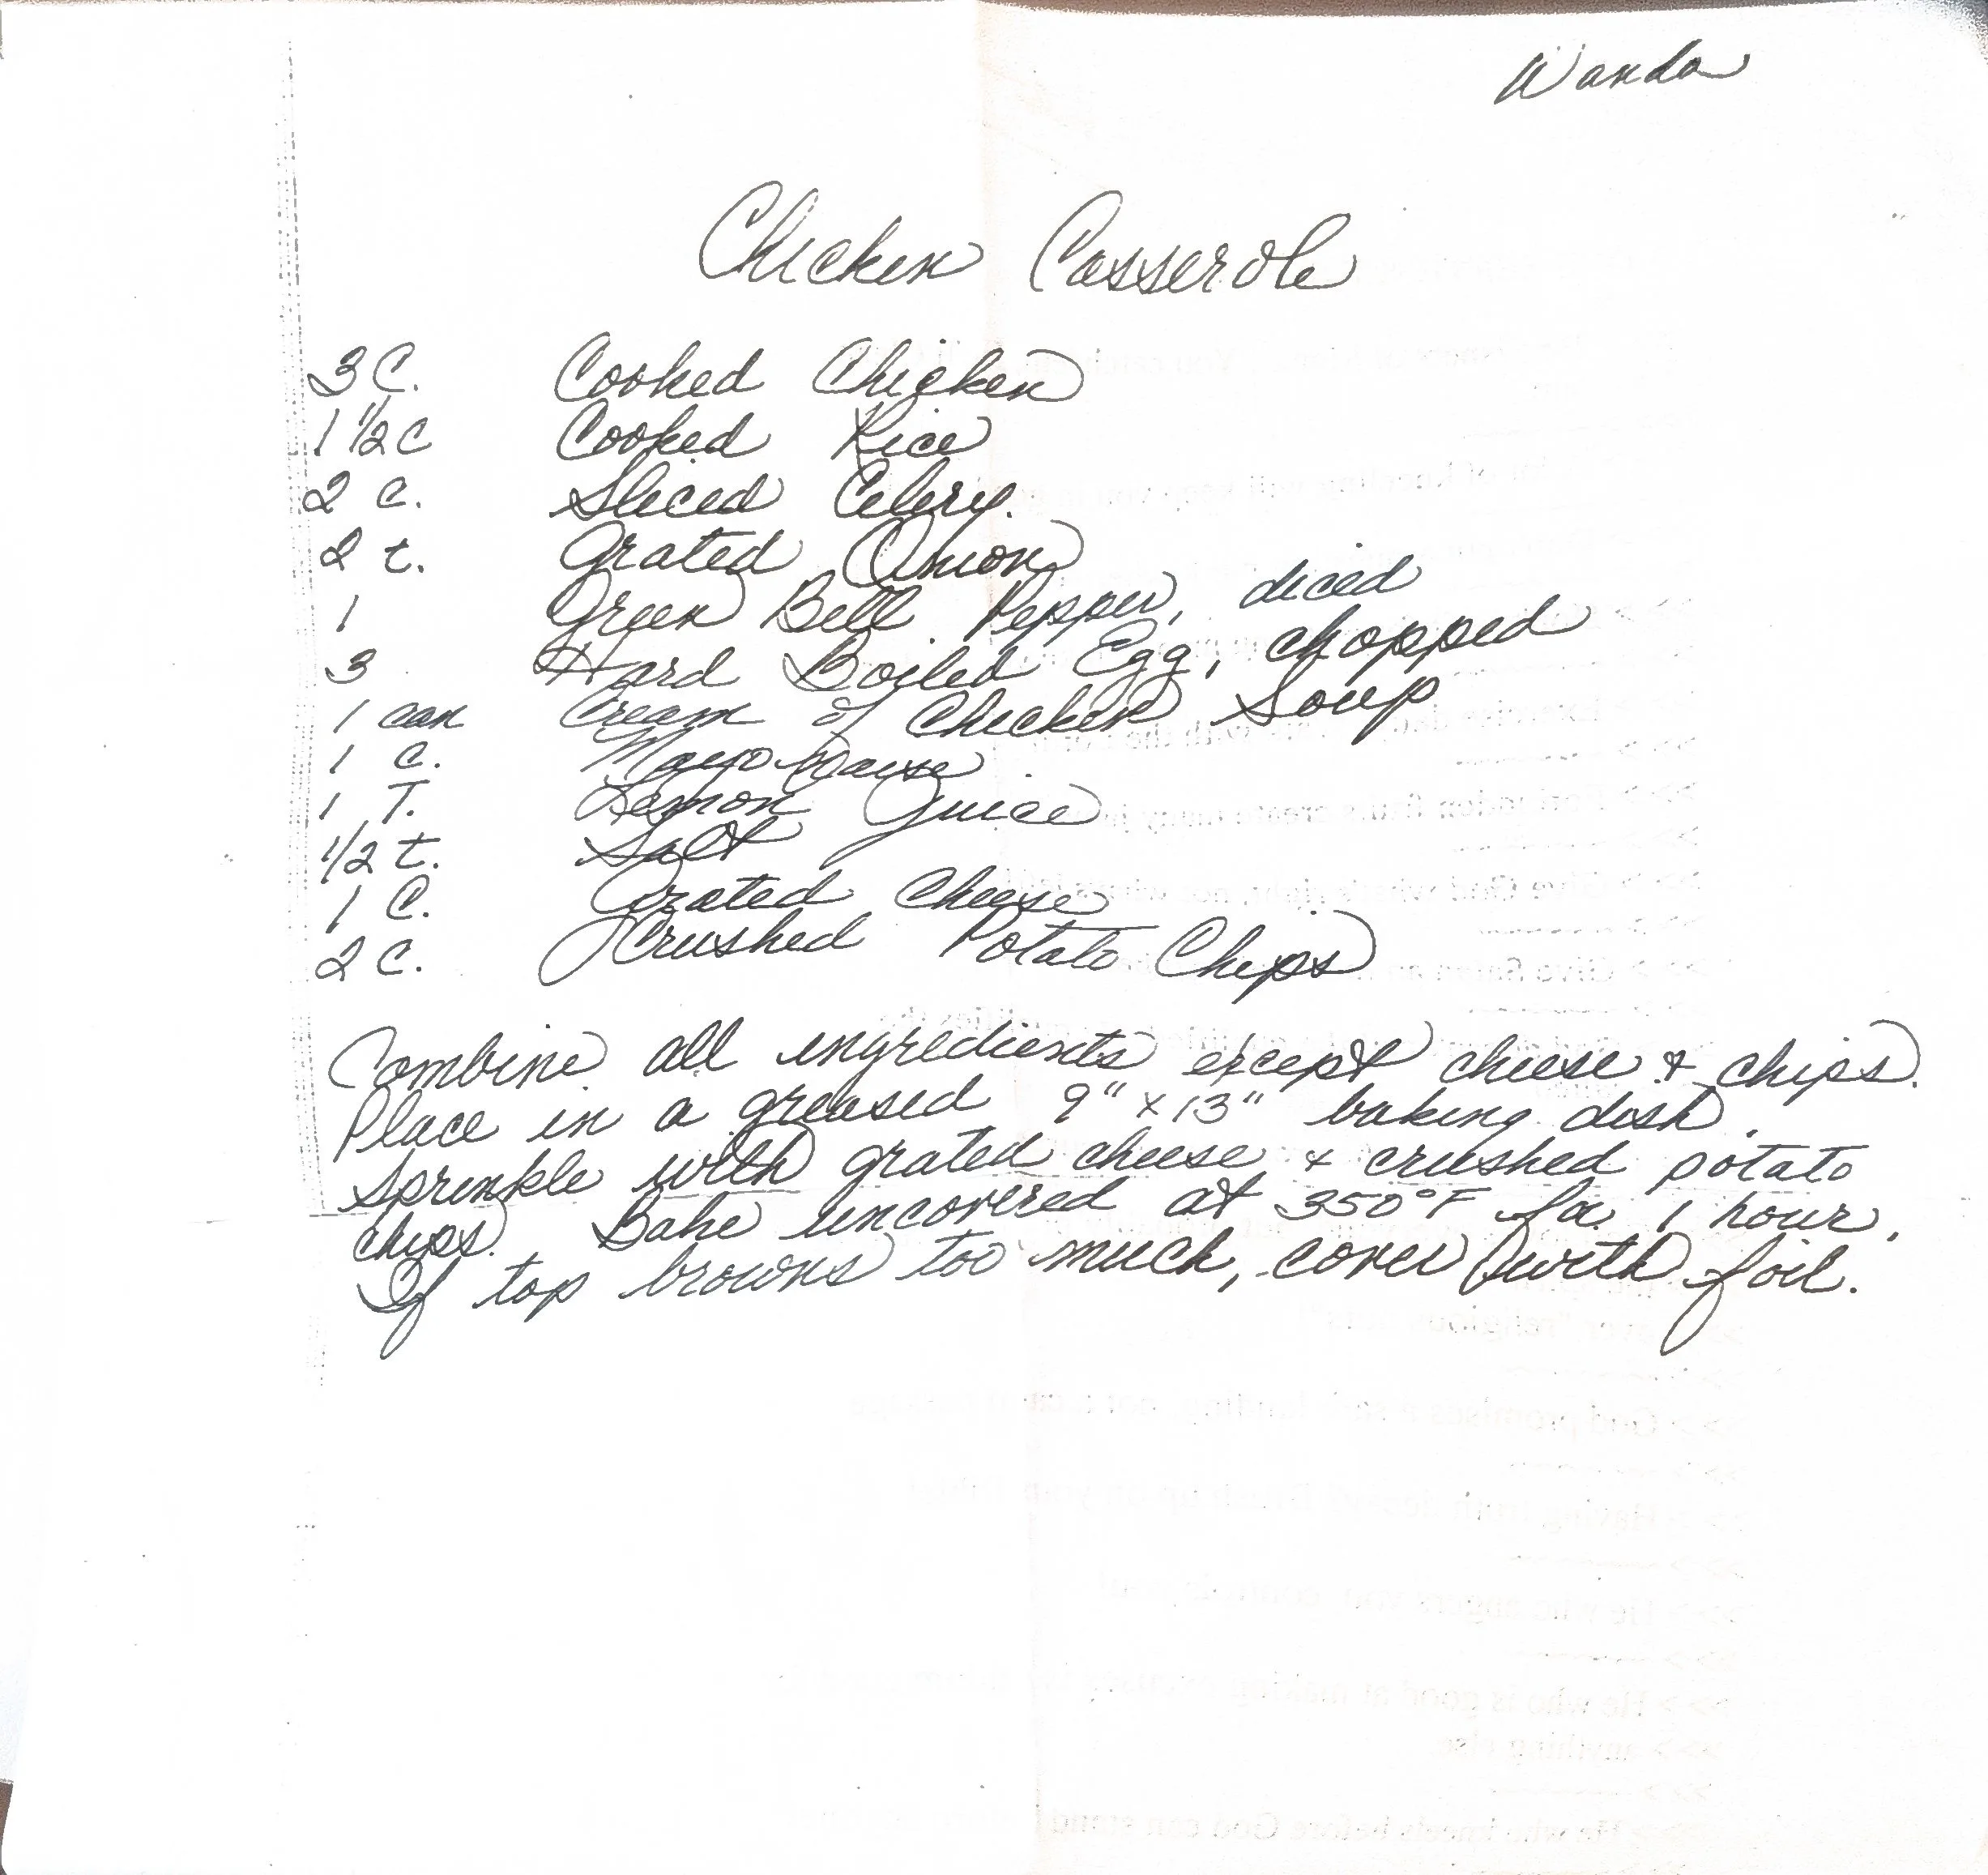 Wanda
Chicken Casserole
3 C. Cooked Chicken
1 1/2 C Cooked Rice
2 C. Sliced Celery.
2 t. Grated Onion
1 Green Bell Pepper, diced
3 Hard Boiled Egg, chopped
1 can Cream of Chicken Soup
1 C. Mayonnaise
1 T. Lemon Juice
1/2 t. Salt
1 C. Grated Cheese
2 C. Crushed Potato Chips
Combine all ingredients except cheese & chips.
Place in a greased 9" x 13" baking dish.
Sprinkle with grated cheese & crushed potato
chips. Bake uncovered at 350°F for 1 hour.
If top browns too much, cover with foil.